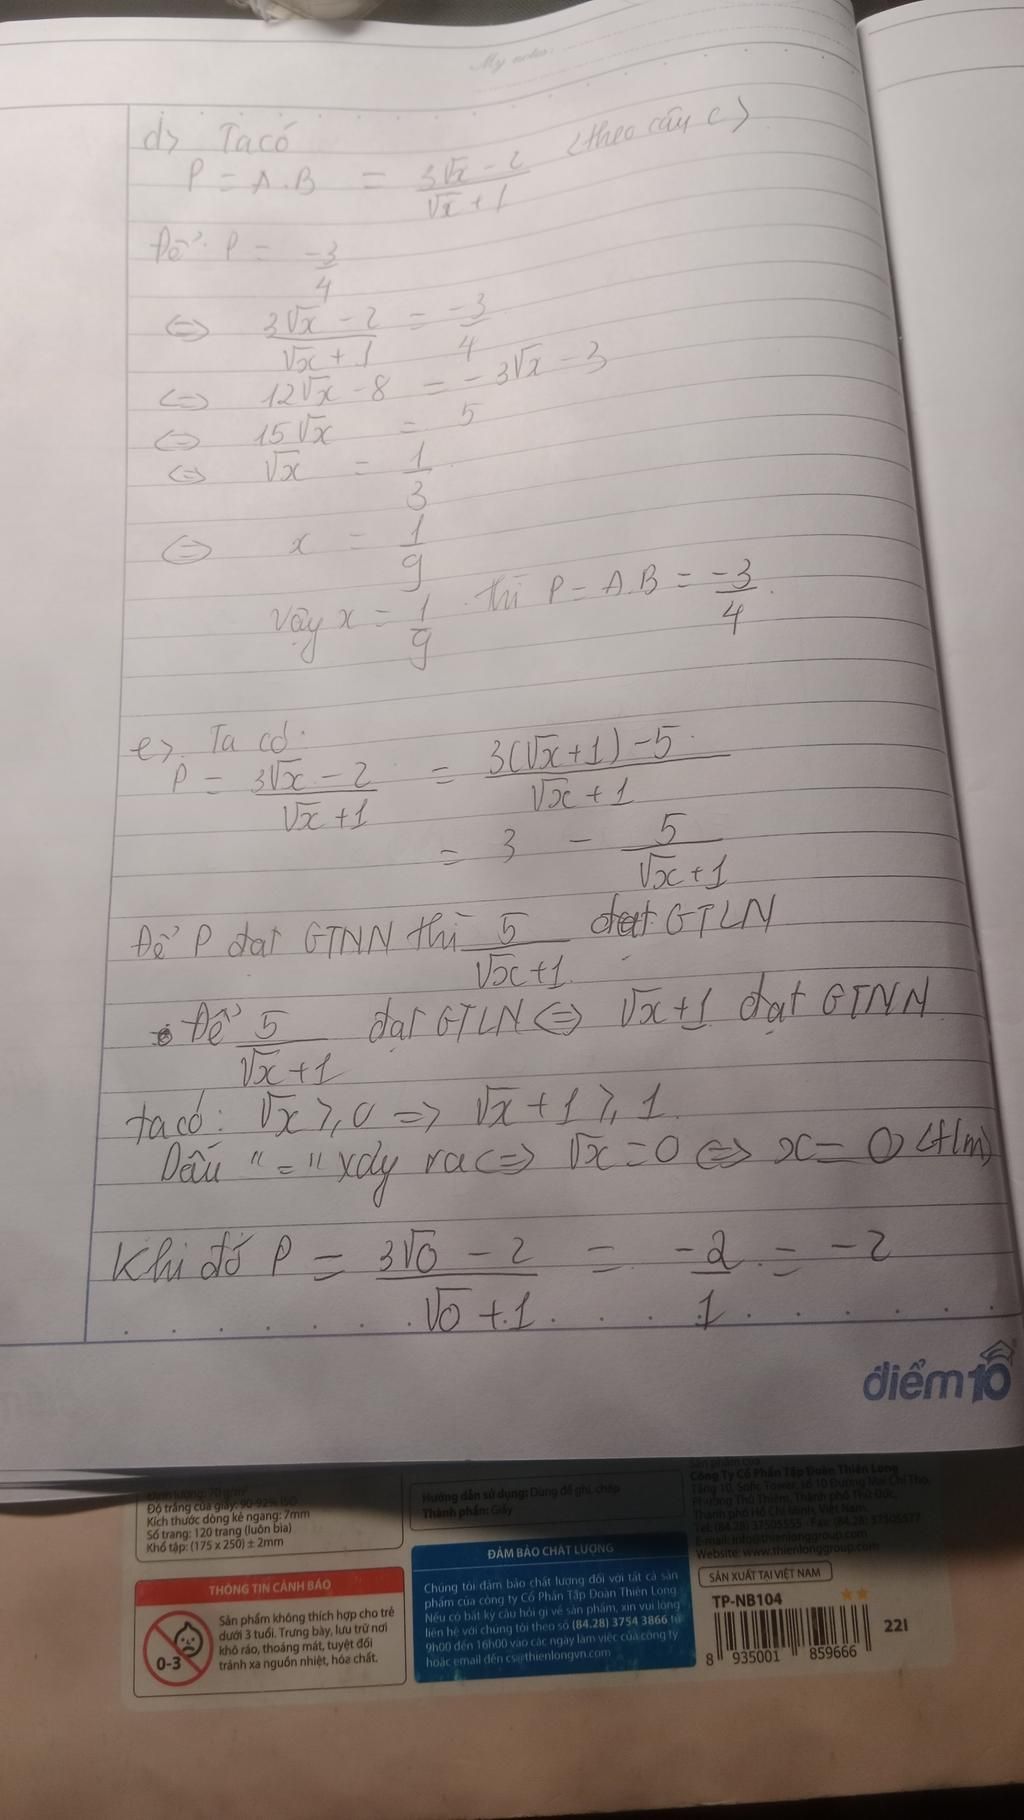 My notes:
d> Ta có
P = A.B = (3√x - 2)/(√x + 1) <theo câu c>
Để P = -3/4
<=> (3√x - 2)/(√x + 1) = -3/4
<=> 12√x - 8 = -3√x - 3
<=> 15√x = 5
<=> √x = 1/3
<=> x = 1/9
Vậy x = 1/9 thì P = A.B = -3/4.
e> Ta có:
P = (3√x - 2)/(√x + 1) = (3(√x + 1) - 5)/(√x + 1)
= 3 - 5/(√x + 1)
Để P đạt GTNN thì 5/(√x + 1) đạt GTLN
Để 5/(√x + 1) đạt GTLN <=> √x + 1 đạt GTNN
ta có: √x ≥ 0 => √x + 1 ≥ 1.
Dấu "=" xảy ra <=> √x = 0 <=> x = 0 <t/m>
Khi đó P = (3√0 - 2)/(√0 + 1) = -2/1 = -2
điểm10
Định lượng: 70 g/m²
Độ trắng của giấy: 90-92% ISO
Kích thước dòng kẻ ngang: 7mm
Số trang: 120 trang (luôn bìa)
Khổ tập: (175 x 250) ± 2mm
THÔNG TIN CẢNH BÁO
0-3
Sản phẩm không thích hợp cho trẻ
dưới 3 tuổi. Trưng bày, lưu trữ nơi
khô ráo, thoáng mát, tuyệt đối
tránh xa nguồn nhiệt, hóa chất.
Hướng dẫn sử dụng: Dùng để ghi, chép
Thành phần: Giấy
ĐẢM BẢO CHẤT LƯỢNG
Chúng tôi đảm bảo chất lượng đối với tất cả sản
phẩm của công ty Cổ Phần Tập Đoàn Thiên Long.
Nếu có bất kỳ câu hỏi gì về sản phẩm, xin vui lòng
liên hệ với chúng tôi theo số (84.28) 3754 3866 từ
9h00 đến 16h00 vào các ngày làm việc của công ty
hoặc email đến cs@thienlongvn.com
Sản phẩm của
Công Ty Cổ Phần Tập Đoàn Thiên Long
Tầng 10, Sofic Tower, số 10 Đường Mai Chí Thọ,
Phường Thủ Thiêm, Thành phố Thủ Đức,
Thành phố Hồ Chí Minh, Việt Nam.
Tel: (84.28) 37505555 - Fax: (84.28) 37505577
E-mail: info@thienlonggroup.com
Website: www.thienlonggroup.com
SẢN XUẤT TẠI VIỆT NAM
TP-NB104
8 935001 859666
22I